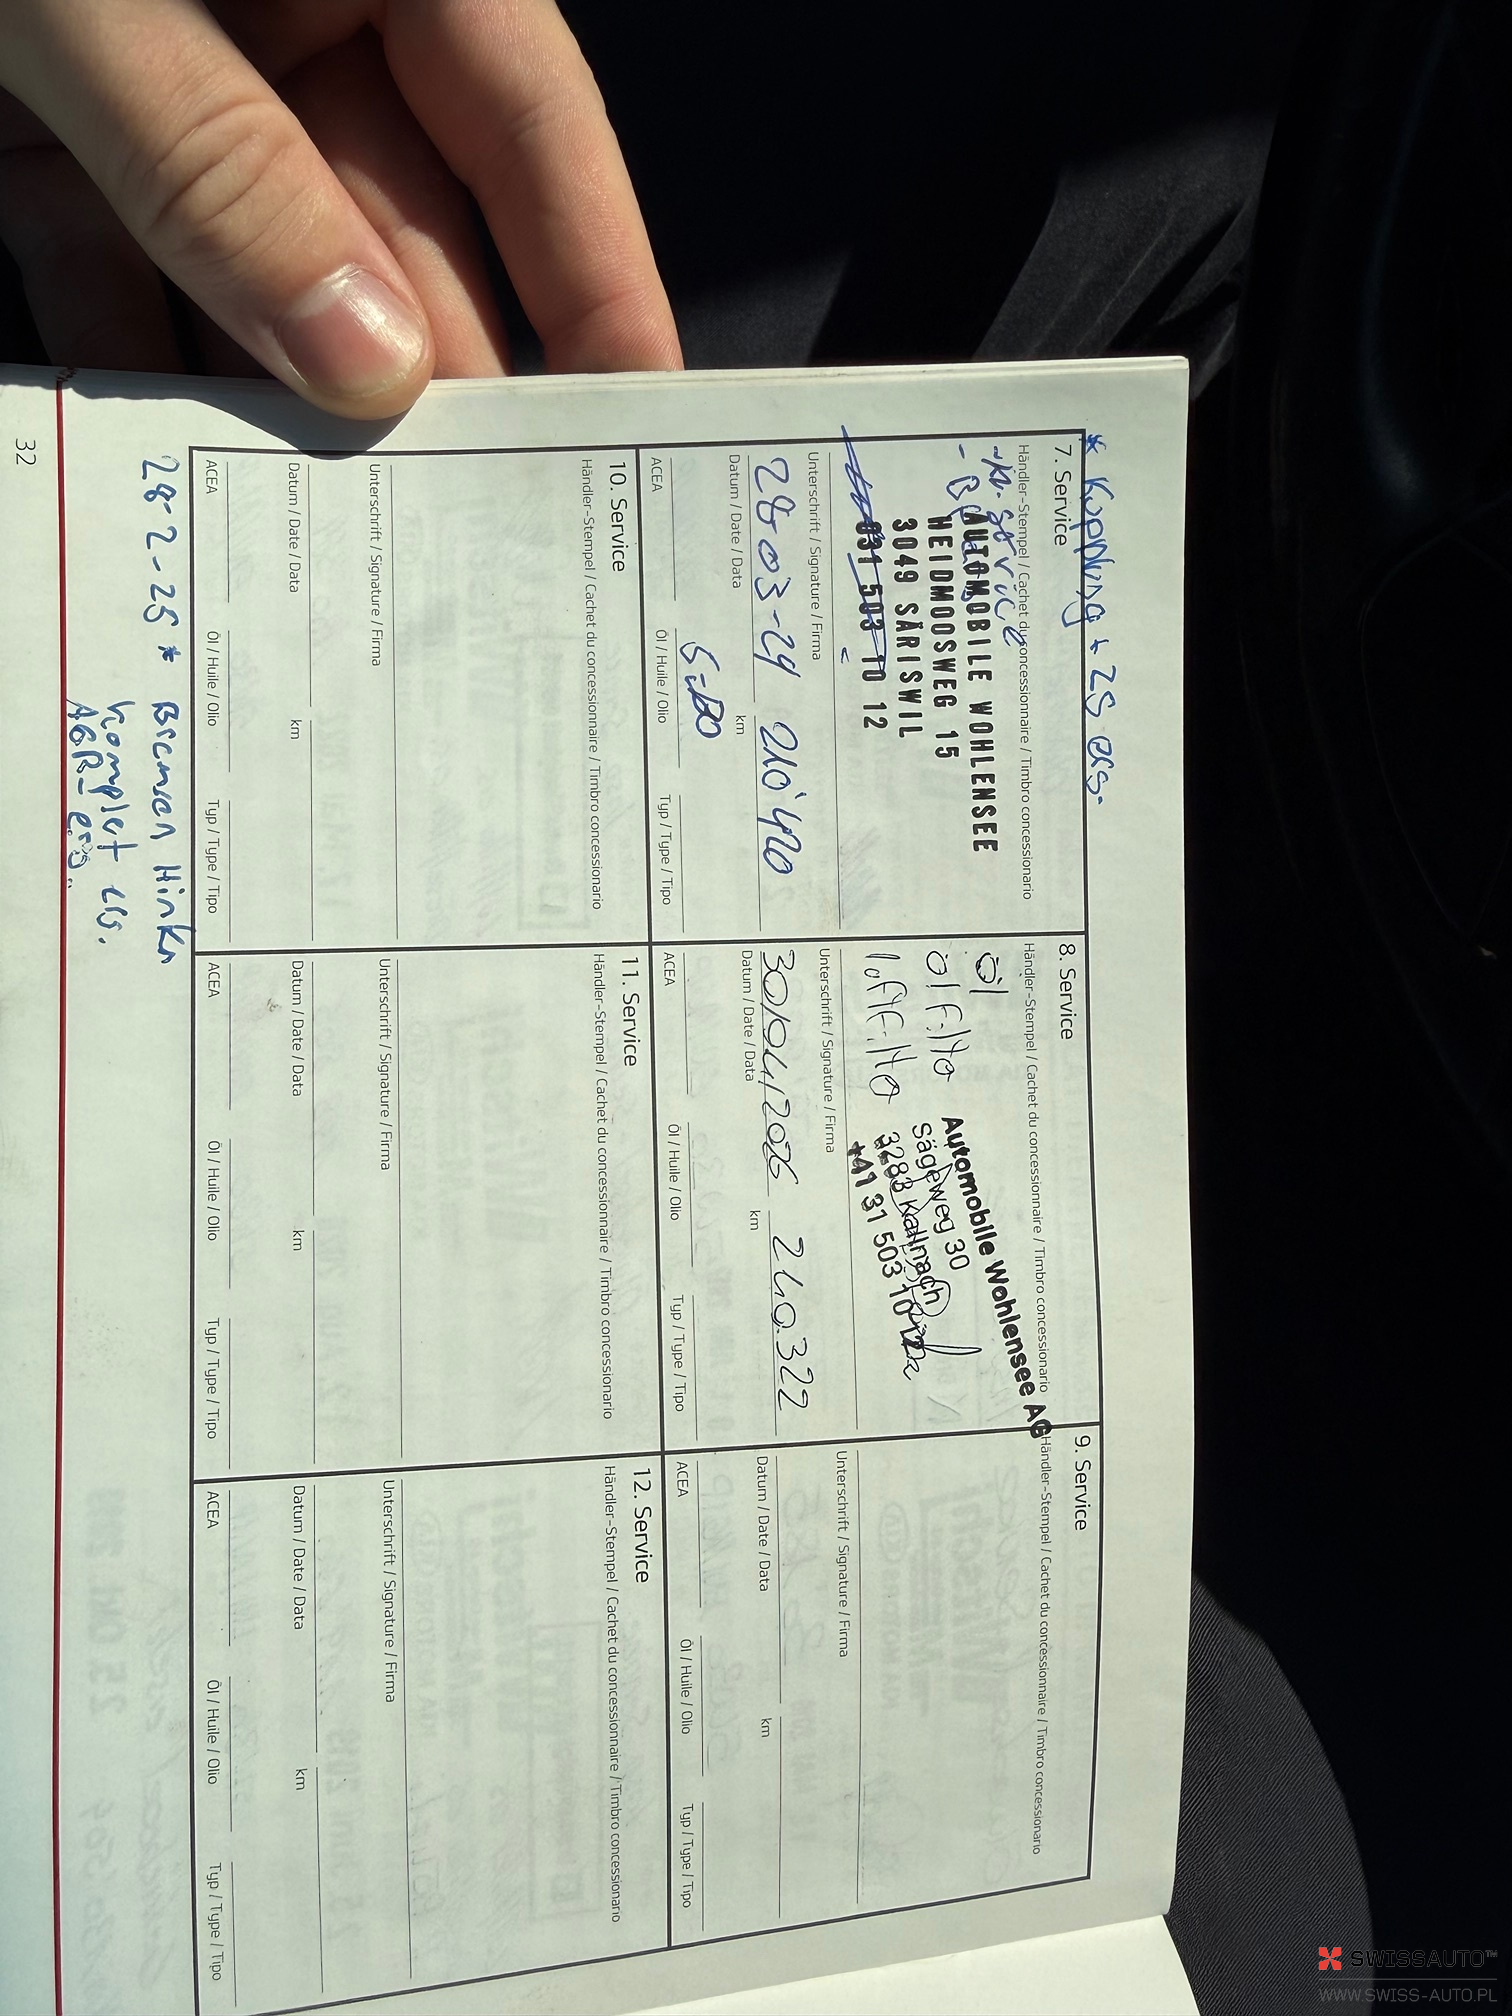 * Kupplung + ZS ers.
7. Service
Händler-Stempel / Cachet du concessionnaire / Timbro concessionario
Service
AUTOMOBILE WOHLENSEE
HEIDMOOSWEG 15
3049 SÄRISWIL
031 503 10 12
Unterschrift / Signature / Firma
28-03-24 210'420
Datum / Date / Data km
5-30
ACEA Öl / Huile / Olio Typ / Type / Tipo
8. Service
Händler-Stempel / Cachet du concessionnaire / Timbro concessionario
Öl
Ölfilter
Luftfilter
Automobile Wohlensee AG
Sägeweg 30
3283 Kallnach
+41 31 503 10 12
Unterschrift / Signature / Firma
30/04/2026 240.322
Datum / Date / Data km
ACEA Öl / Huile / Olio Typ / Type / Tipo
9. Service
Händler-Stempel / Cachet du concessionnaire / Timbro concessionario
Unterschrift / Signature / Firma
Datum / Date / Data km
ACEA Öl / Huile / Olio Typ / Type / Tipo
10. Service
Händler-Stempel / Cachet du concessionnaire / Timbro concessionario
Unterschrift / Signature / Firma
Datum / Date / Data km
ACEA Öl / Huile / Olio Typ / Type / Tipo
11. Service
Händler-Stempel / Cachet du concessionnaire / Timbro concessionario
Unterschrift / Signature / Firma
Datum / Date / Data km
ACEA Öl / Huile / Olio Typ / Type / Tipo
12. Service
Händler-Stempel / Cachet du concessionnaire / Timbro concessionario
Unterschrift / Signature / Firma
Datum / Date / Data km
ACEA Öl / Huile / Olio Typ / Type / Tipo
28-2-25 * Bremsen Hinten
komplet ers.
AGR- ers.
32
SWISSAUTO™
WWW.SWISS-AUTO.PL